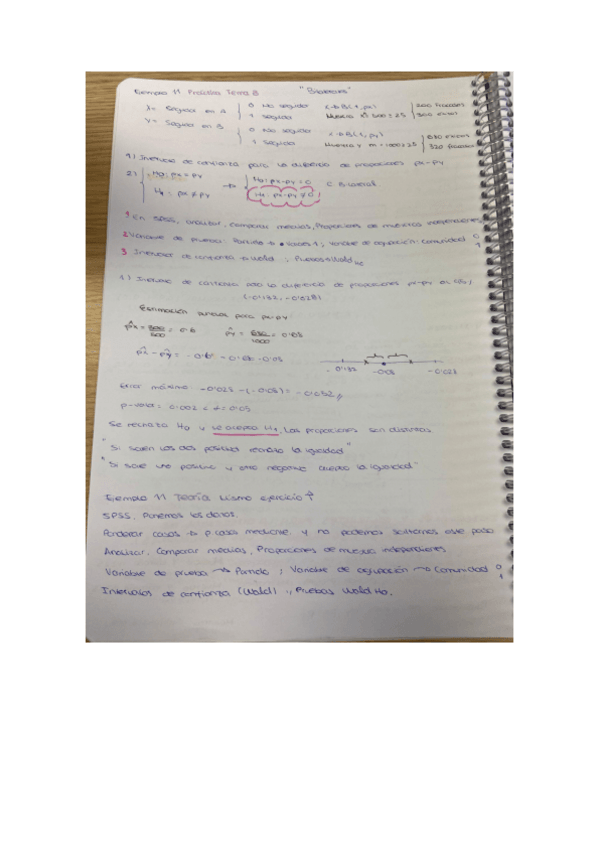 Ejemplo 11 Práctica Tema 8 "Bilateral"
X= Seguido en A 0 No seguido X→B(1,px) 200 fracasos
1 seguido Muestra n=500≥25 300 éxitos
Y= Seguido en B 0 No seguido Y→B(1,py) 680 éxitos
1 Seguido Muestra Y m=1000≥25 320 fracasos
1) Intervalo de confianza para la diferencia de proporciones px-py
2) H0: px = py → H0: px-py = 0 Bilateral
H1: px ≠ py H1: px-py ≠ 0
1 En SPSS, analizar, comparar medias, Proporciones de muestras independientes
2 Variable de prueba: Partido → Valores 1; Variable de agrupación: comunidad 0 1
3 Intervalos de confianza → Wald; Pruebas → Wald H0
1) Intervalo de confianza para la diferencia de proporciones px-py
(-0'132, -0'028)
Estimación puntual para px-py
p̂x = 300/500 = 0'6 p̂y = 680/1000 = 0'68
p̂x - p̂y = 0'6 - 0'68 = -0'08
-0'132 -0'08 -0'028
Error máximo -0'028 - (-0'08) = 0'052
p-valor = 0'002 < α = 0'05
Se rechaza H0 y se acepta H1. Las proporciones son distintas
"Si salen los dos positivos rechazo la igualdad"
"Si sale uno positivo y otro negativo acepto la igualdad"
Ejemplo 11 Teoría mismo ejercicio ↑
SPSS. Ponemos los datos
Ponderar casos → p casos mediante y no podemos saltarnos este paso
Analizar. Comparar medias, Proporciones de muestras independientes
Variable de prueba → Partido; Variable de agrupación → Comunidad 0 1
Intervalos de confianza (Wald), Pruebas Wald H0.